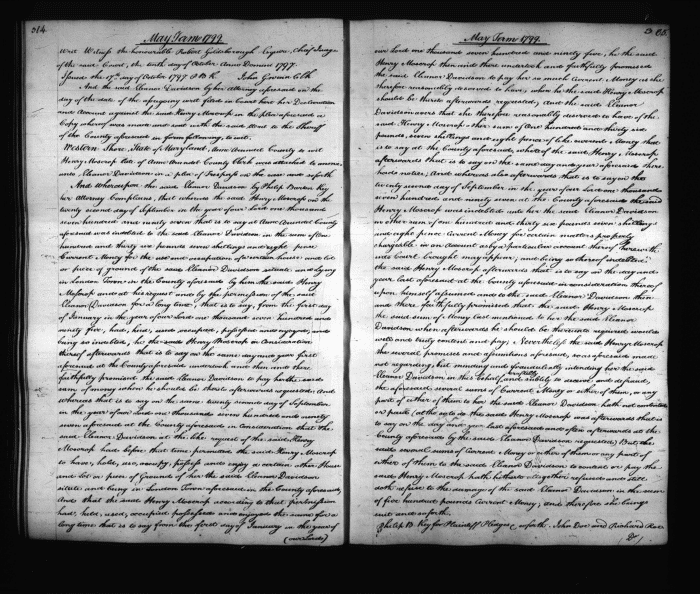 314
May Term 1799
Writ Witness the honourable Robert Goldsborough Esquire, Chief Judge
of the said Court, the tenth day of October Anno Domini 1797.
Issued the 17th day of October 1797 P B K. John Gwinn Clk
And the said Eleanor Davidson by her attorney aforesaid on the
day of the date of the aforegoing writ filed in Court here her Declaration
and Account against the said Henry Moscrop in the plea aforesaid a
Copy whereof was made and sent with the said Writ to the Sheriff
of the County aforesaid in form following, to wit.
Western Shore, State of Maryland, Anne Arundel County to wit
Henry Moscrop late of Anne Arundel County Clerk was attached to answer
unto Eleanor Davidson in a plea of Trespass on the case and soforth
And whereupon the said Eleanor Davidson by Philip Barton Key
her Attorney Complains, that whereas the said Henry Moscrop on the
twenty second day of September in the year of our Lord one thousand
seven hundred and ninety seven that is to say at Anne Arundel County
aforesaid was indebted to the said Eleanor Davidson in the sum of one
hundred and thirty six pounds seven shillings and eight pence
Current Money for the use and occupation of a certain house and lot
or piece of ground of the said Eleanor Davidson situate and lying
in London Town in the County aforesaid by him the said Henry
Moscrop and at his request and by the permission of the said
Eleanor Davidson for a long time, that is to say, from the first day
of January in the year of our Lord one thousand seven hundred and
ninety five, had, held, used, occupied, possessed and enjoyed, and
being so indebted, he the said Henry Moscrop in Consideration
thereof afterwards that is to say on the same day and year first
aforesaid at the County aforesaid undertook and then and there
faithfully promised the said Eleanor Davidson to pay her the said
sum of money when he should be thereto afterwards requested. And
whereas that is to say on the same twenty second day of September
in the year of our Lord one thousand seven hundred and ninety
seven aforesaid at the County aforesaid in Consideration that the
said Eleanor Davidson at the like request of the said Henry
Moscrop had before that time permitted the said Henry Moscrop
to have, hold, use, occupy, possess and enjoy a certain other House
and lot or piece of ground of her the said Eleanor Davidson
situate and being in London Town aforesaid in the County aforesaid,
And that the said Henry Moscrop according to that permission
had, held, used, occupied possessed and enjoyed the same for a
long time that is to say from the first day of January in the year of
(our Lord)
May Term 1799.
our Lord one thousand seven hundred and ninety five, he the said
Henry Moscrop then and there undertook and faithfully promised
the said Eleanor Davidson to pay her so much Current Money as she
therefore reasonably deserved to have, when he the said Henry Moscrop
should be thereto afterwards requested; And the said Eleanor
Davidson avers that she therefore reasonably deserved to have of the
said Henry Moscrop other sum of one hundred and thirty six
pounds, seven shillings and eight pence of like current Money that
is to say at the County aforesaid, whereof the said Henry Moscrop
afterwards that is to say on the same day and year aforesaid there
had notice; And whereas also afterwards that is to say on the
twenty second day of September in the year of our Lord one thousand
seven hundred and ninety seven at the County aforesaid the said
Henry Moscrop was indebted unto her the said Eleanor Davidson
in other sum of one hundred and thirty six pounds seven shillings
and eight pence Current Money for certain matters properly
chargeable in an account as by a particular account thereof herewith
into Court brought may appear, and being so thereof indebted
the said Henry Moscrop afterwards that is to say on the day and
year last aforesaid at the County aforesaid in consideration thereof
upon himself assumed and to the said Eleanor Davidson then
and there faithfully promised that the said Henry Moscrop
the said sum of Money last mentioned to her the said Eleanor
Davidson when afterwards he should be thereunto requested would
well and truly content and pay; Nevertheless the said Henry Moscrop
the several promises and assumptions aforesaid, so as aforesaid made
not regarding, but minding and fraudulently intending her the said
Eleanor Davidson in this behalf craftily and subtily to deceive and defraud,
the aforesaid several sums of Current Money or either of them, or any
part of either of them to her the said Eleanor Davidson hath not contented
or paid (altho so to do the said Henry Moscrop was afterwards that is
to say on the day and year last aforesaid and often afterwards at the
County aforesaid by the said Eleanor Davidson requested) But the
said several sums of Current Money or either of them or any part of
either of them to the said Eleanor Davidson to content or pay the
said Henry Moscrop hath hitherto altogether refused and still
doth refuse to the damage of the said Eleanor Davidson in the sum
of five hundred pounds Current Money; and therefore she brings
suit and soforth.
Philip B. Key for Plaintiff Pledges &c soforth. John Doe and Richard Roe
Dr